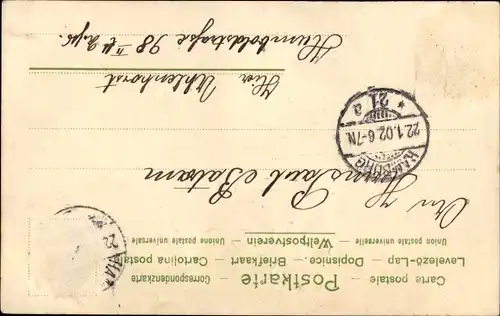 Carte postale — Correspondenzkarte
Postkarte
Levelező-Lap — Dopisnice. — Briefkaart — Cartolina postale
Union postale universelle — Weltpostverein — Unione postale universale
Paul
Hier Uhlenhorst
Humboldtstraße 98 II
HAMBURG
22.1.02.6-7N.
* 21a
22